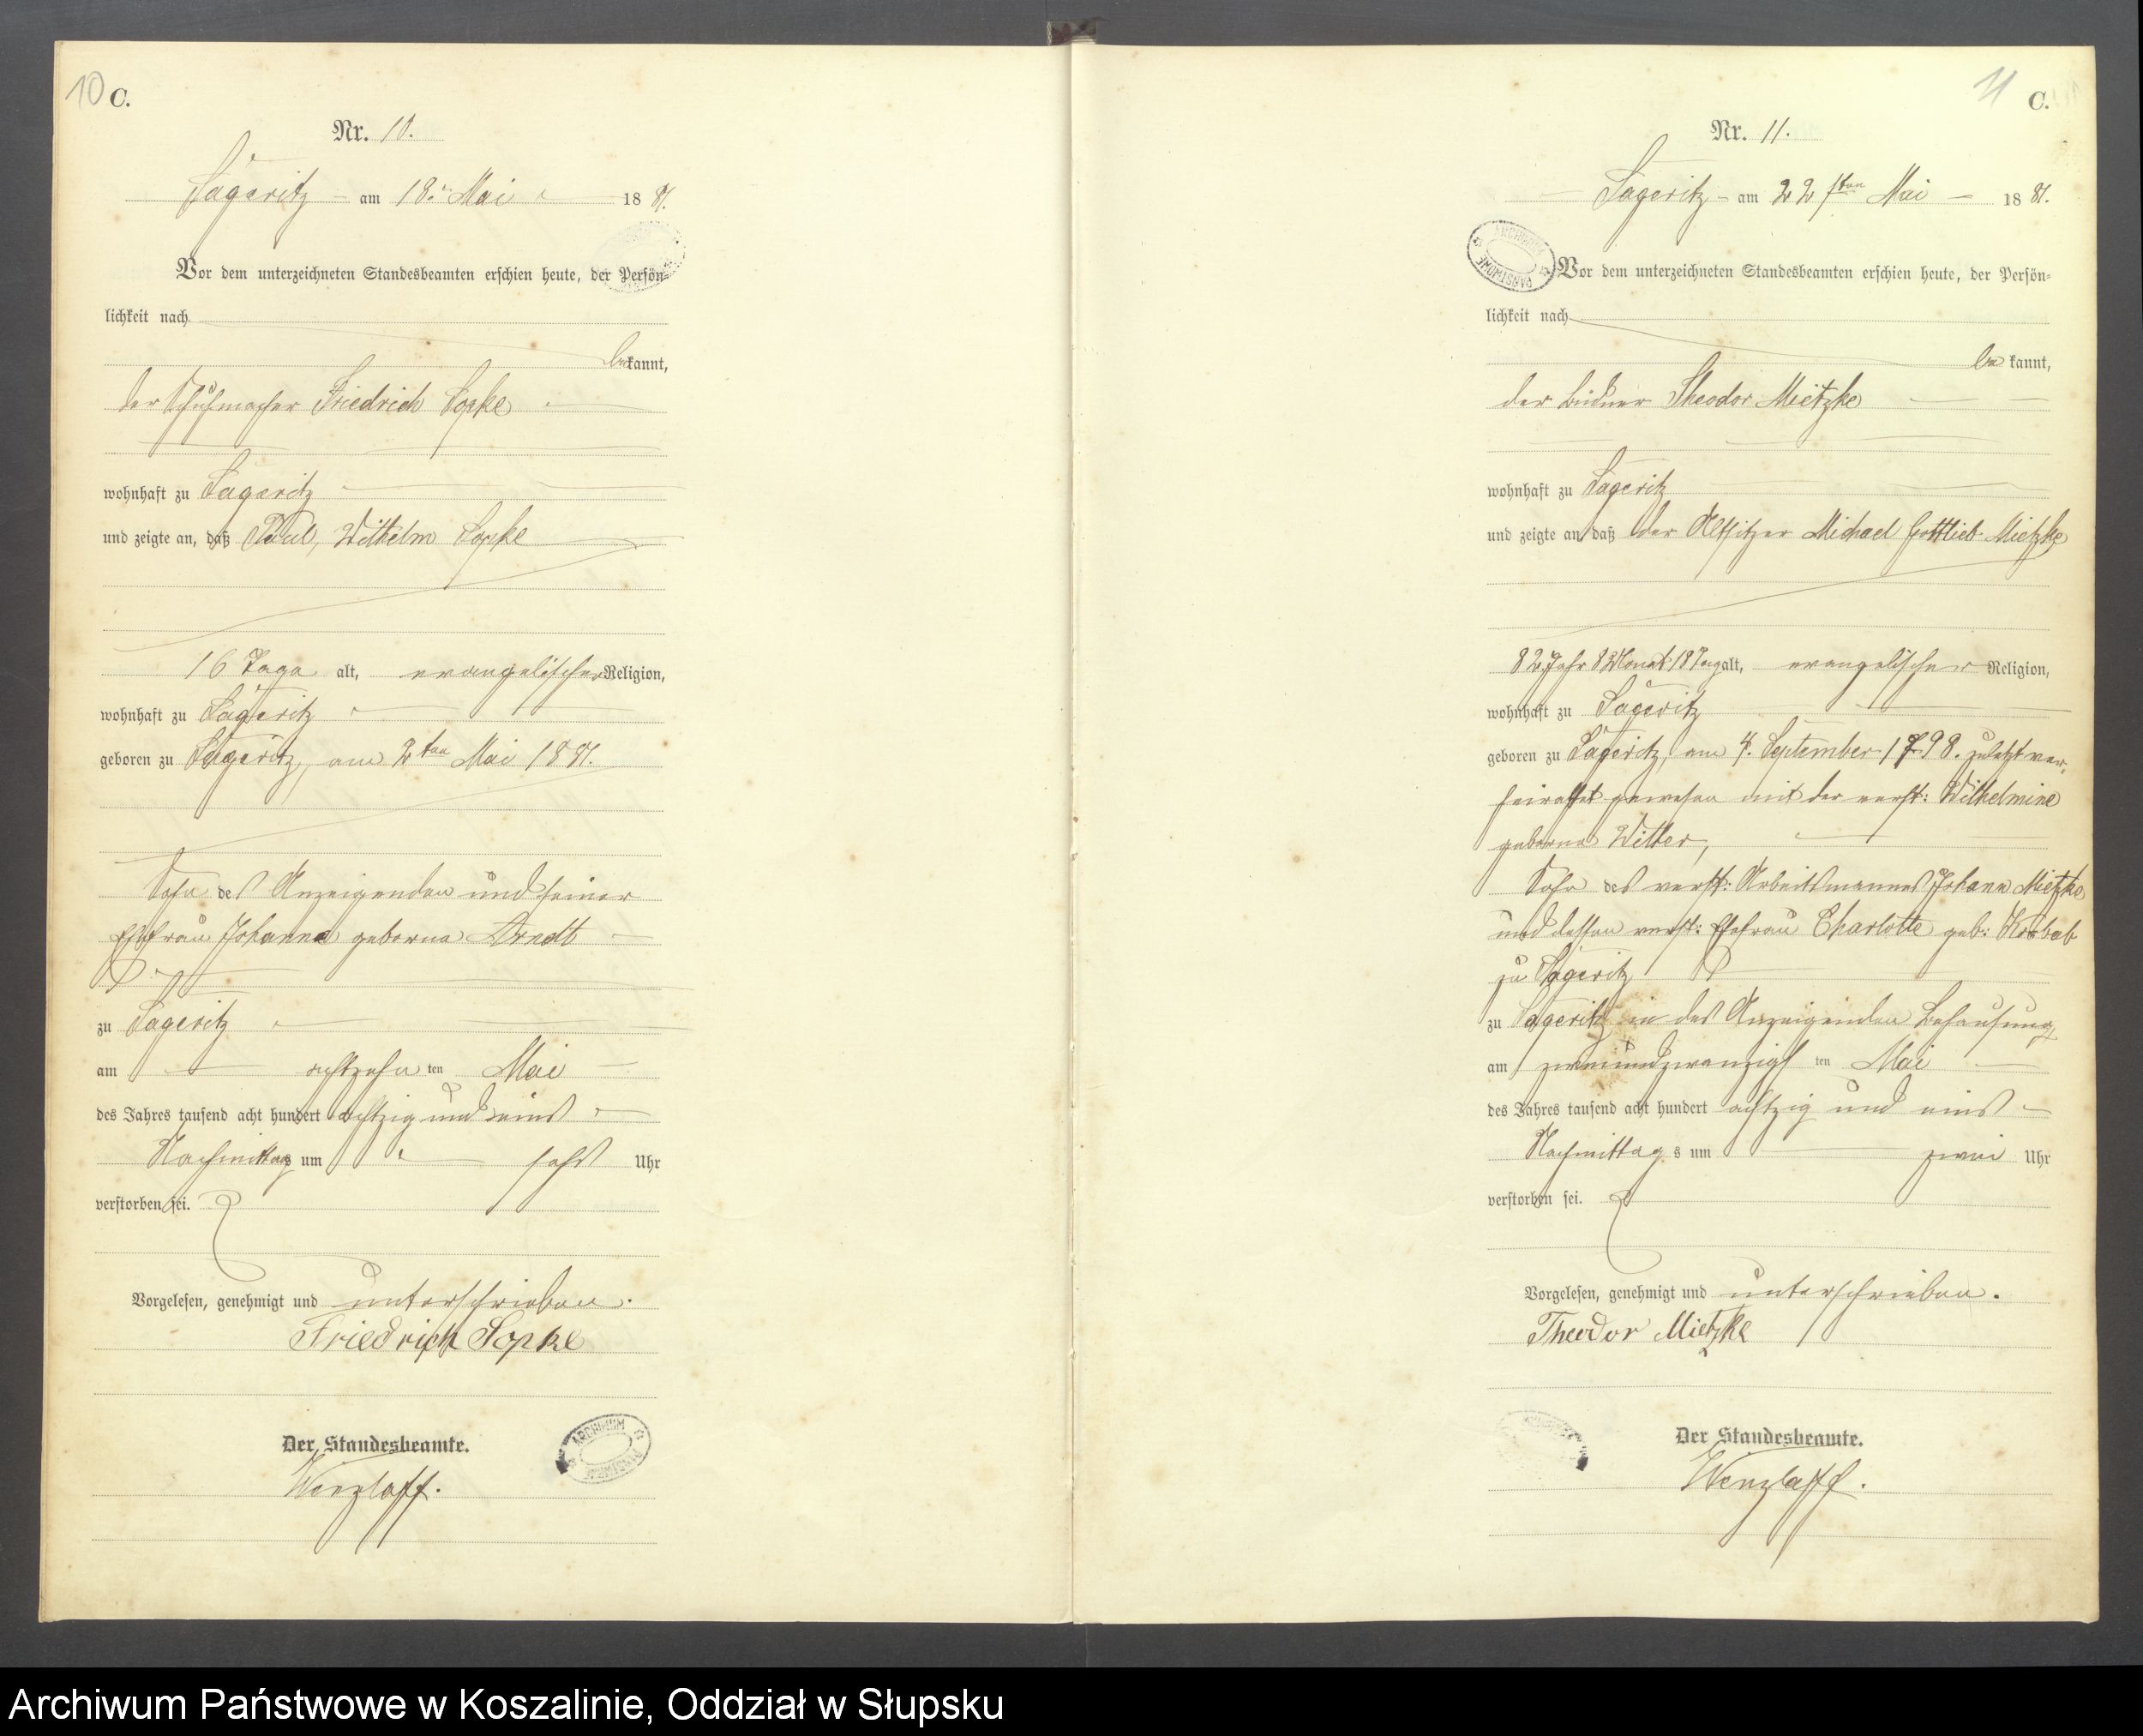 10 C.
Nr. 10.
Sageritz am 18. Mai 1881.
Vor dem unterzeichneten Standesbeamten erschien heute, der Persön-
lichkeit nach
bekannt,
der Schuhmacher Friedrich Sopke
wohnhaft zu Sageritz
und zeigte an, daß Paul, Wilhelm Sopke
16 Tage alt, evangelischer Religion,
wohnhaft zu Sageritz
geboren zu Sageritz, am 2ten Mai 1881.
Sohn des Anzeigenden und seiner
Ehefrau Johanna geborne Arndt
zu Sageritz
am achtzehnten Mai
des Jahres tausend acht hundert achtzig und eins
Nachmittags um sechs Uhr
verstorben sei.
Vorgelesen, genehmigt und unterschrieben.
Friedrich Sopke
Der Standesbeamte.
Wenzlaff.
ARCHIWUM PAŃSTWOWE
11 C.
Nr. 11.
Sageritz am 22sten Mai 1881.
ARCHIWUM PAŃSTWOWE
Vor dem unterzeichneten Standesbeamten erschien heute, der Persön-
lichkeit nach
bekannt,
der Büdner Theodor Mietzke
wohnhaft zu Sageritz
und zeigte an, daß der Altsitzer Michael Gottlieb Mietzke
82 Jahr 8 Monat 18 Tag alt, evangelischer Religion,
wohnhaft zu Sageritz
geboren zu Sageritz, am 4. September 1798. zuletzt ver-
heirathet gewesen mit der verst: Wilhelmine
geborne Witter,
Sohn des verst: Arbeitsmannes Johann Mietzke
und dessen verst: Ehefrau Charlotte geb:
zu Sageritz
zu Sageritz in des Anzeigenden Behausung
am zweiundzwanzigsten Mai
des Jahres tausend acht hundert achtzig und eins
Nachmittags um zwei Uhr
verstorben sei.
Vorgelesen, genehmigt und unterschrieben.
Theodor Mietzke
Der Standesbeamte.
Wenzlaff.
Archiwum Państwowe w Koszalinie, Oddział w Słupsku